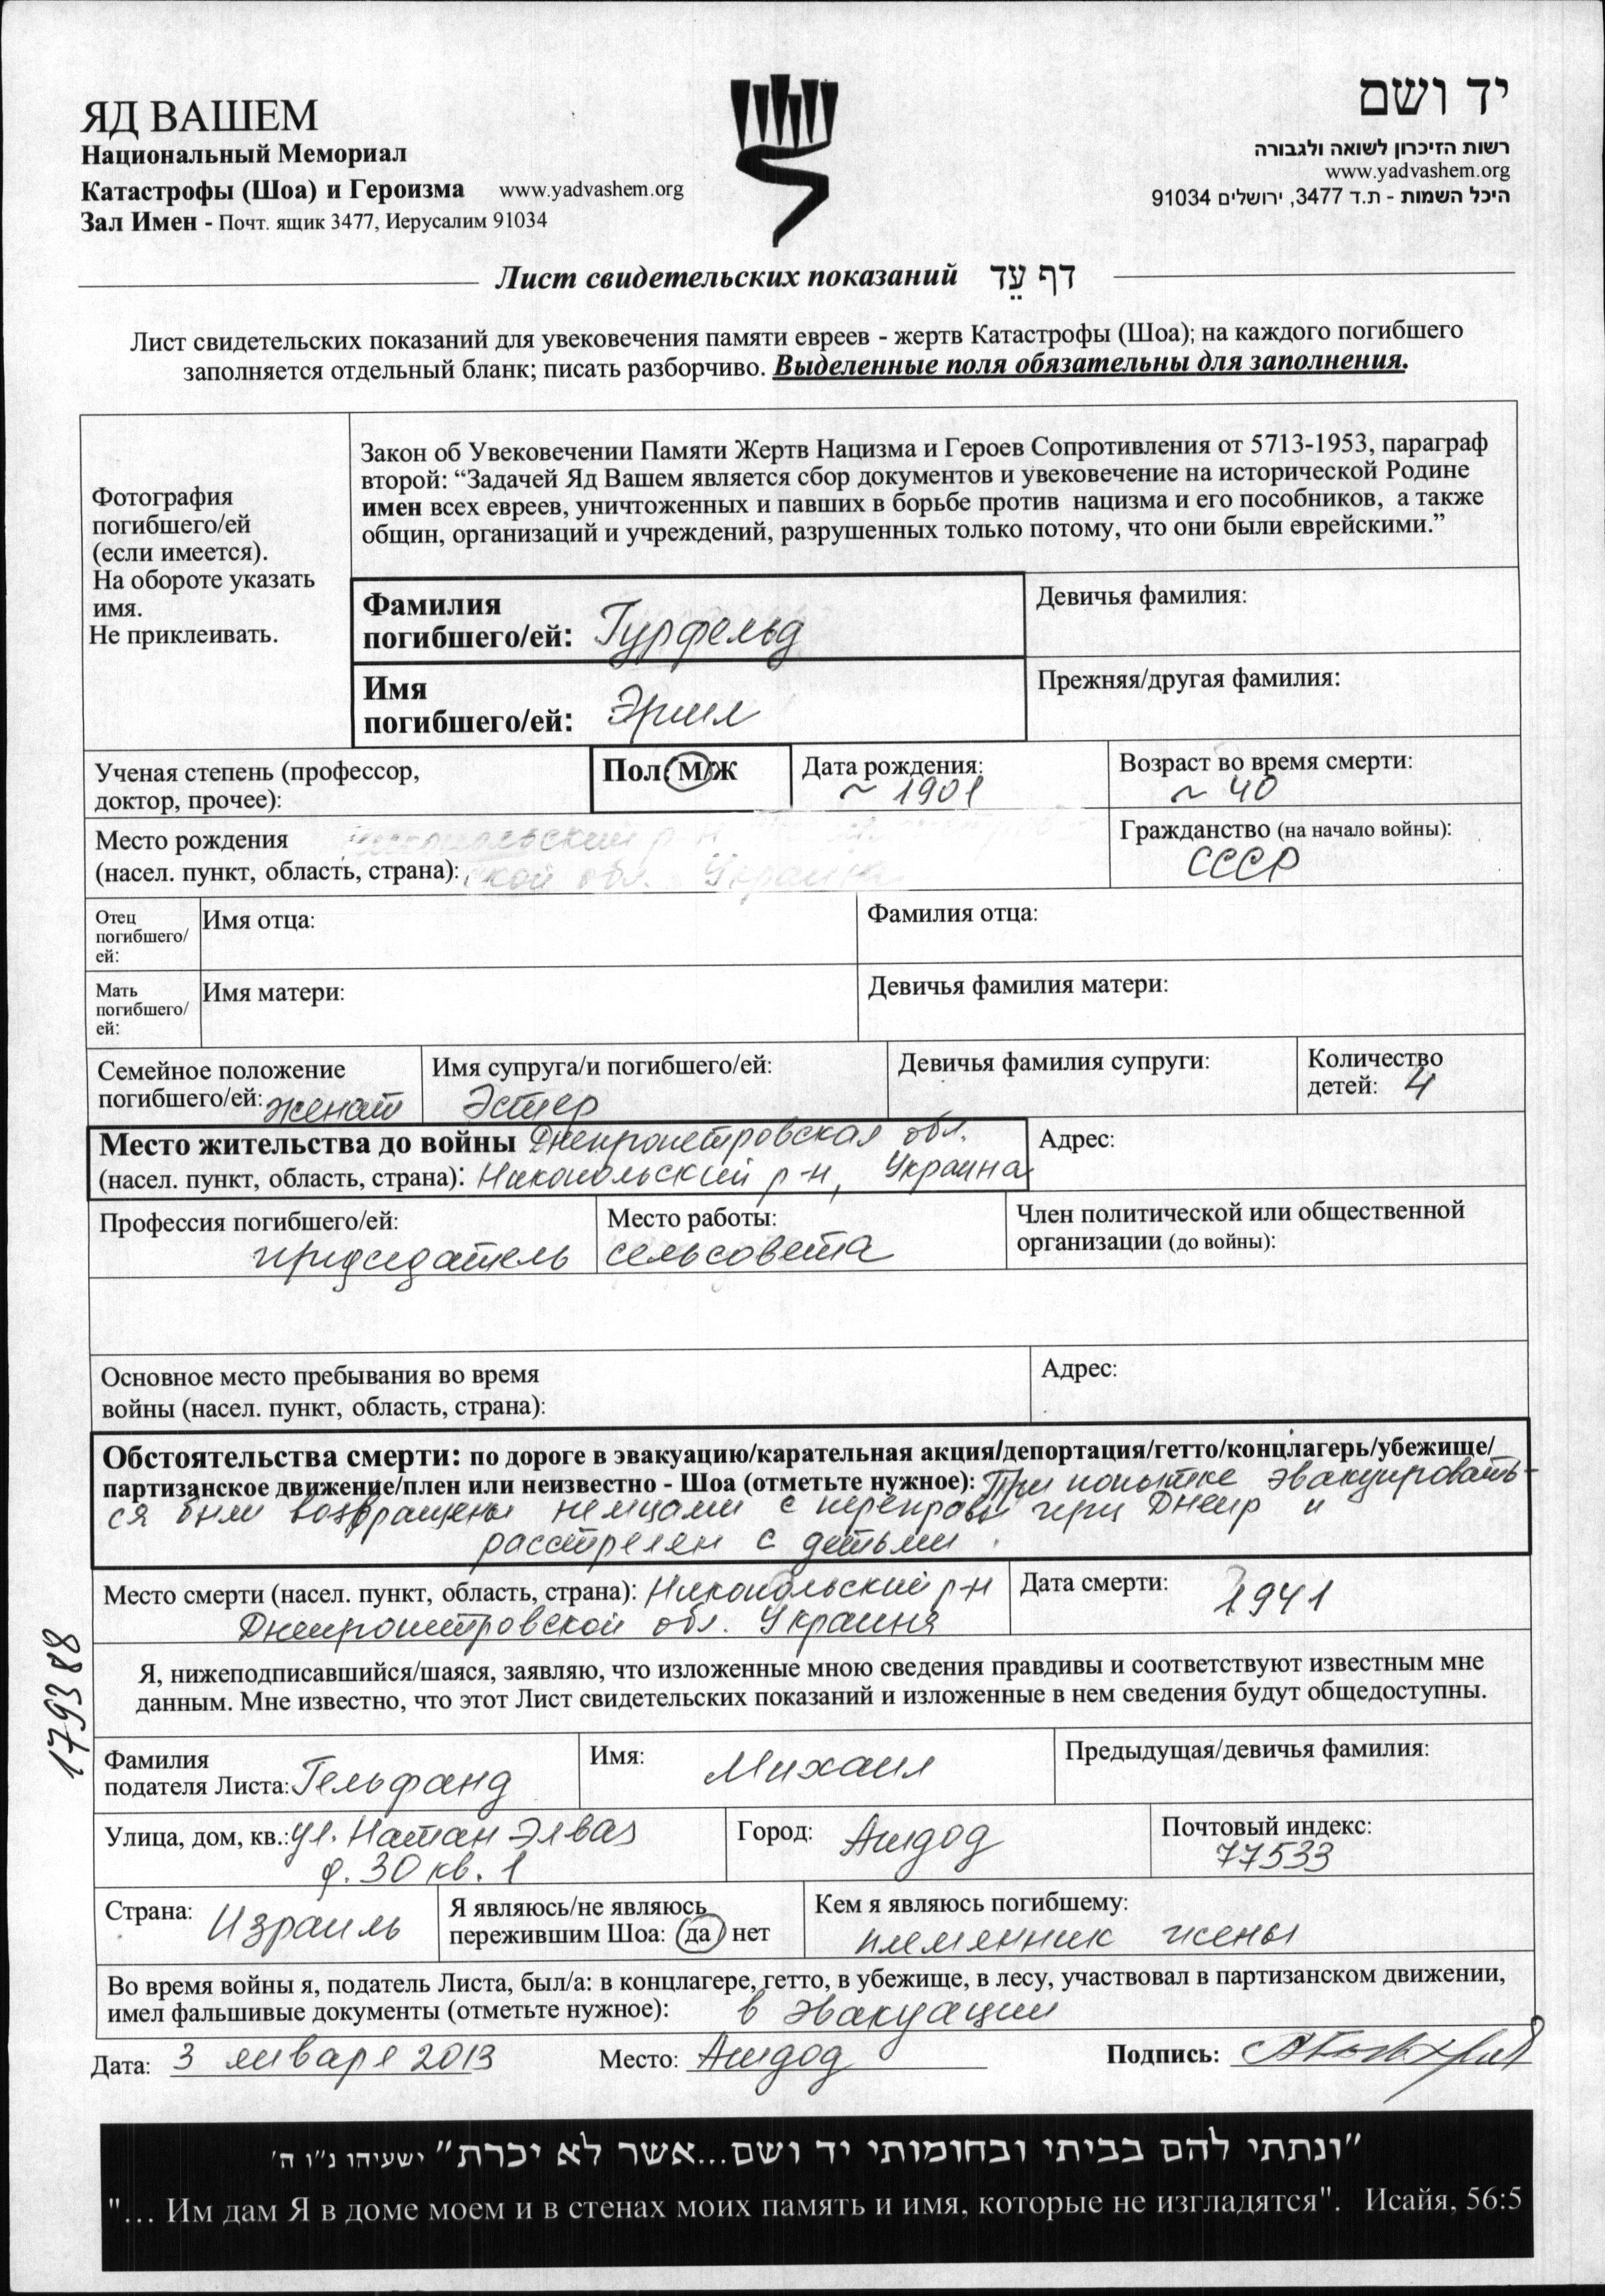 ЯД ВАШЕМ
Национальный Мемориал
Катастрофы (Шоа) и Героизма www.yadvashem.org
Зал Имен - Почт. ящик 3477, Иерусалим 91034
יד ושם
רשות הזיכרון לשואה ולגבורה
www.yadvashem.org
היכל השמות - ת.ד 3477, ירושלים 91034
Лист свидетельских показаний דף עֵד
Лист свидетельских показаний для увековечения памяти евреев - жертв Катастрофы (Шоа); на каждого погибшего
заполняется отдельный бланк; писать разборчиво. Выделенные поля обязательны для заполнения.
Фотография
погибшего/ей
(если имеется).
На обороте указать
имя.
Не приклеивать.
Закон об Увековечении Памяти Жертв Нацизма и Героев Сопротивления от 5713-1953, параграф
второй: “Задачей Яд Вашем является сбор документов и увековечение на исторической Родине
имен всех евреев, уничтоженных и павших в борьбе против нацизма и его пособников, а также
общин, организаций и учреждений, разрушенных только потому, что они были еврейскими.”
Фамилия
погибшего/ей: Гурфельд
Девичья фамилия:
Имя
погибшего/ей: Эрил
Прежняя/другая фамилия:
Ученая степень (профессор,
доктор, прочее):
Пол: М/Ж
Дата рождения:
~ 1901
Возраст во время смерти:
~ 40
Место рождения
(насел. пункт, область, страна): ской обл. Украина
Гражданство (на начало войны):
СССР
Отец
погибшего/
ей:
Имя отца:
Фамилия отца:
Мать
погибшего/
ей:
Имя матери:
Девичья фамилия матери:
Семейное положение
погибшего/ей: женат
Имя супруга/и погибшего/ей:
Эстер
Девичья фамилия супруги:
Количество
детей: 4
Место жительства до войны Днепропетровская обл.
(насел. пункт, область, страна): Никопольский р-н, Украина
Адрес:
Профессия погибшего/ей:
председатель
Место работы:
сельсовета
Член политической или общественной
организации (до войны):
Основное место пребывания во время
войны (насел. пункт, область, страна):
Адрес:
Обстоятельства смерти: по дороге в эвакуацию/карательная акция/депортация/гетто/концлагерь/убежище/
партизанское движение/плен или неизвестно - Шоа (отметьте нужное): При попытке эвакуировать-
ся были возвращены немцами с переправы через Днепр и
расстрелян с детьми.
Место смерти (насел. пункт, область, страна): Никопольский р-н
Днепропетровской обл. Украина
Дата смерти:
1941
Я, нижеподписавшийся/шаяся, заявляю, что изложенные мною сведения правдивы и соответствуют известным мне
данным. Мне известно, что этот Лист свидетельских показаний и изложенные в нем сведения будут общедоступны.
179388
Фамилия
подателя Листа: Гельфанд
Имя: Михаил
Предыдущая/девичья фамилия:
Улица, дом, кв.: ул. Натан Элваз
д. 30 кв. 1
Город: Ашдод
Почтовый индекс:
77533
Страна: Израиль
Я являюсь/не являюсь
пережившим Шоа: да нет
Кем я являюсь погибшему:
племянник жены
Во время войны я, податель Листа, был/а: в концлагере, гетто, в убежище, в лесу, участвовал в партизанском движении,
имел фальшивые документы (отметьте нужное): в эвакуации
Дата: 3 января 2013 Место: Ашдод Подпись:
"ונתתי להם בביתי ובחומותי יד ושם...אשר לא יכרת" ישעיהו נ"ו ה'
"... Им дам Я в доме моем и в стенах моих память и имя, которые не изгладятся". Исайя, 56:5